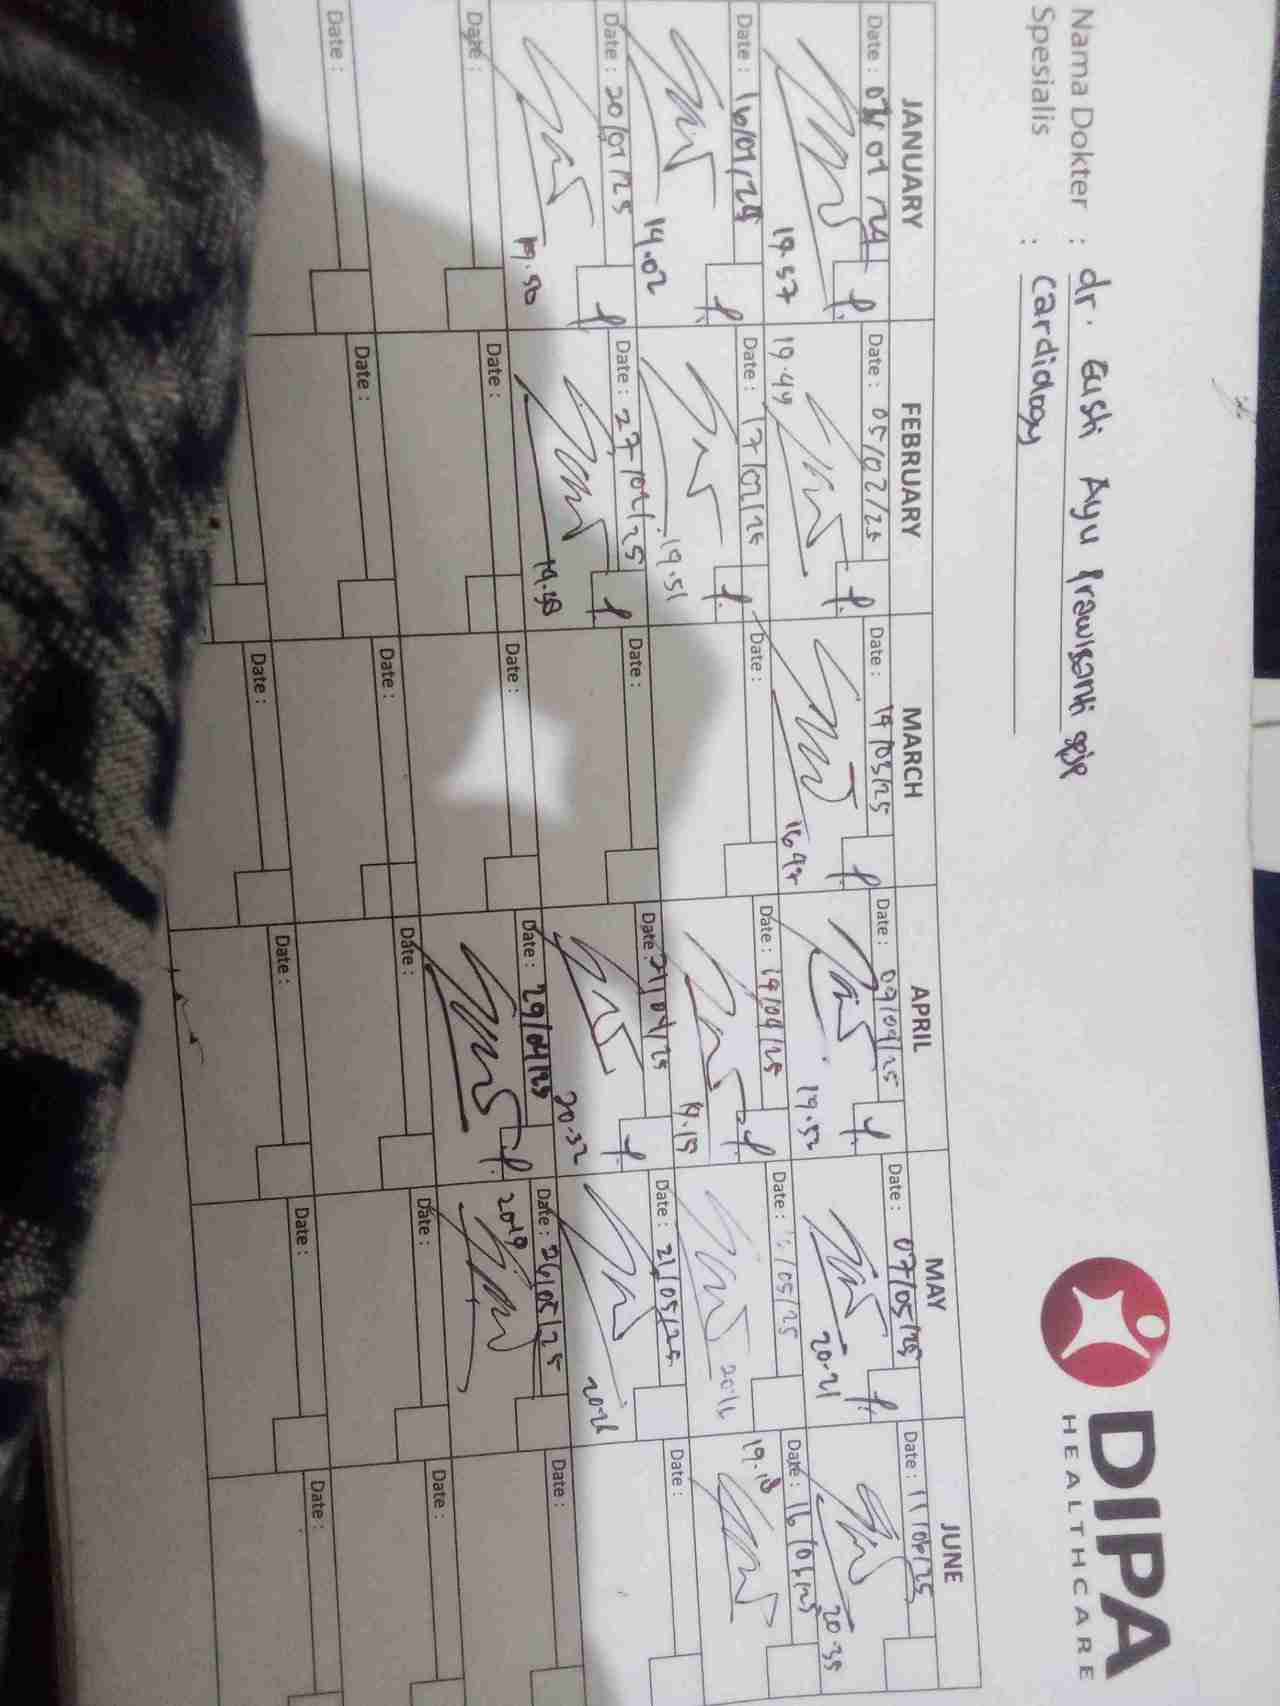 DIPA
HEALTHCARE
Nama Dokter : dr. Gusti Ayu Prawisanti spjp
Spesialis : Cardiology
JANUARY FEBRUARY MARCH APRIL MAY JUNE
Date : 01/24 Date : 05/02/25 Date : 19/03/25 Date : 09/04/25 Date : 07/05/25 Date : 11/06/25
19.57 19.49 19.52 20.21 20.35
Date : 16/01/25 Date : 17/02/25 Date : Date : 19/04/25 Date : /05/25 Date : 16/06/25
19.02 19.51 19.19 20.16 19.18
Date : 20/01/25 Date : 27/02/25 Date : Date : 21/04/25 Date : 21/05/25 Date :
19.50 20.32
Date : Date : Date : Date : 29/04/25 Date : 26/05/25 Date :
2019
Date : Date : Date : Date : Date : Date :
Date : Date : Date : Date :